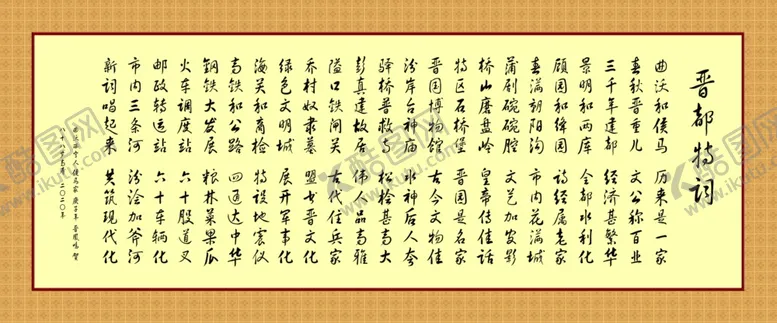 晋都特词
曲沃和侯马 历来是一家
春秋晋重儿 文公称百业
三千年建都 经济甚繁华
景明和两库 全都水利化
顾园和绛园 诗经属老家
春满朝阳沟 市内花满城
蒲剧碗碗腔 文艺加发影
桥山磨盘岭 皇帝传佳话
特区石桥堡 晋国是名家
晋国博物馆 古今文物佳
汾岸台神庙 水神后人夸
驿桥普救寺 松桧甚高大
彭真建故居 伟人品高雅
隘口铁闸关 古代住兵家
乔村奴隶墓 盟书晋文化
绿色文明城 展开军事化
海关和商检 特设地震仪
高铁和公路 四通达中华
钢铁大发展 粮林菜果瓜
火车调度站 六十股道叉
邮政转运站 六十车辆化
市内三条河 汾浍加斧河
新词唱起来 共筑现代化
二〇二〇年
酷图网
www.ikutu.com